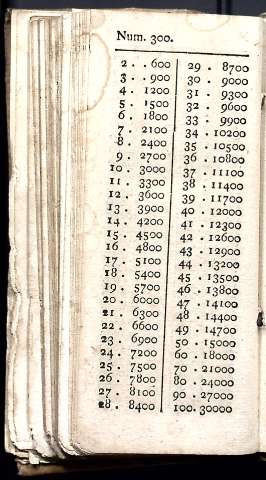 Num. 300.
2 . . 600
3 . . 900
4 . 1200
5 . 1500
6 . 1800
7 . 2100
8 . 2400
9 . 2700
10 . 3000
11 . 3300
12 . 3600
13 . 3900
14 . 4200
15 . 4500
16 . 4800
17 . 5100
18 . 5400
19 . 5700
20 . 6000
21 . 6300
22 . 6600
23 . 6900
24 . 7200
25 . 7500
26 . 7800
27 . 8100
28 . 8400
29 . 8700
30 . 9000
31 . 9300
32 . 9600
33 . 9900
34 . 10200
35 . 10500
36 . 10800
37 . 11100
38 . 11400
39 . 11700
40 . 12000
41 . 12300
42 . 12600
43 . 12900
44 . 13200
45 . 13500
46 . 13800
47 . 14100
48 . 14400
49 . 14700
50 . 15000
60 . 18000
70 . 21000
80 . 24000
90 . 27000
100. 30000